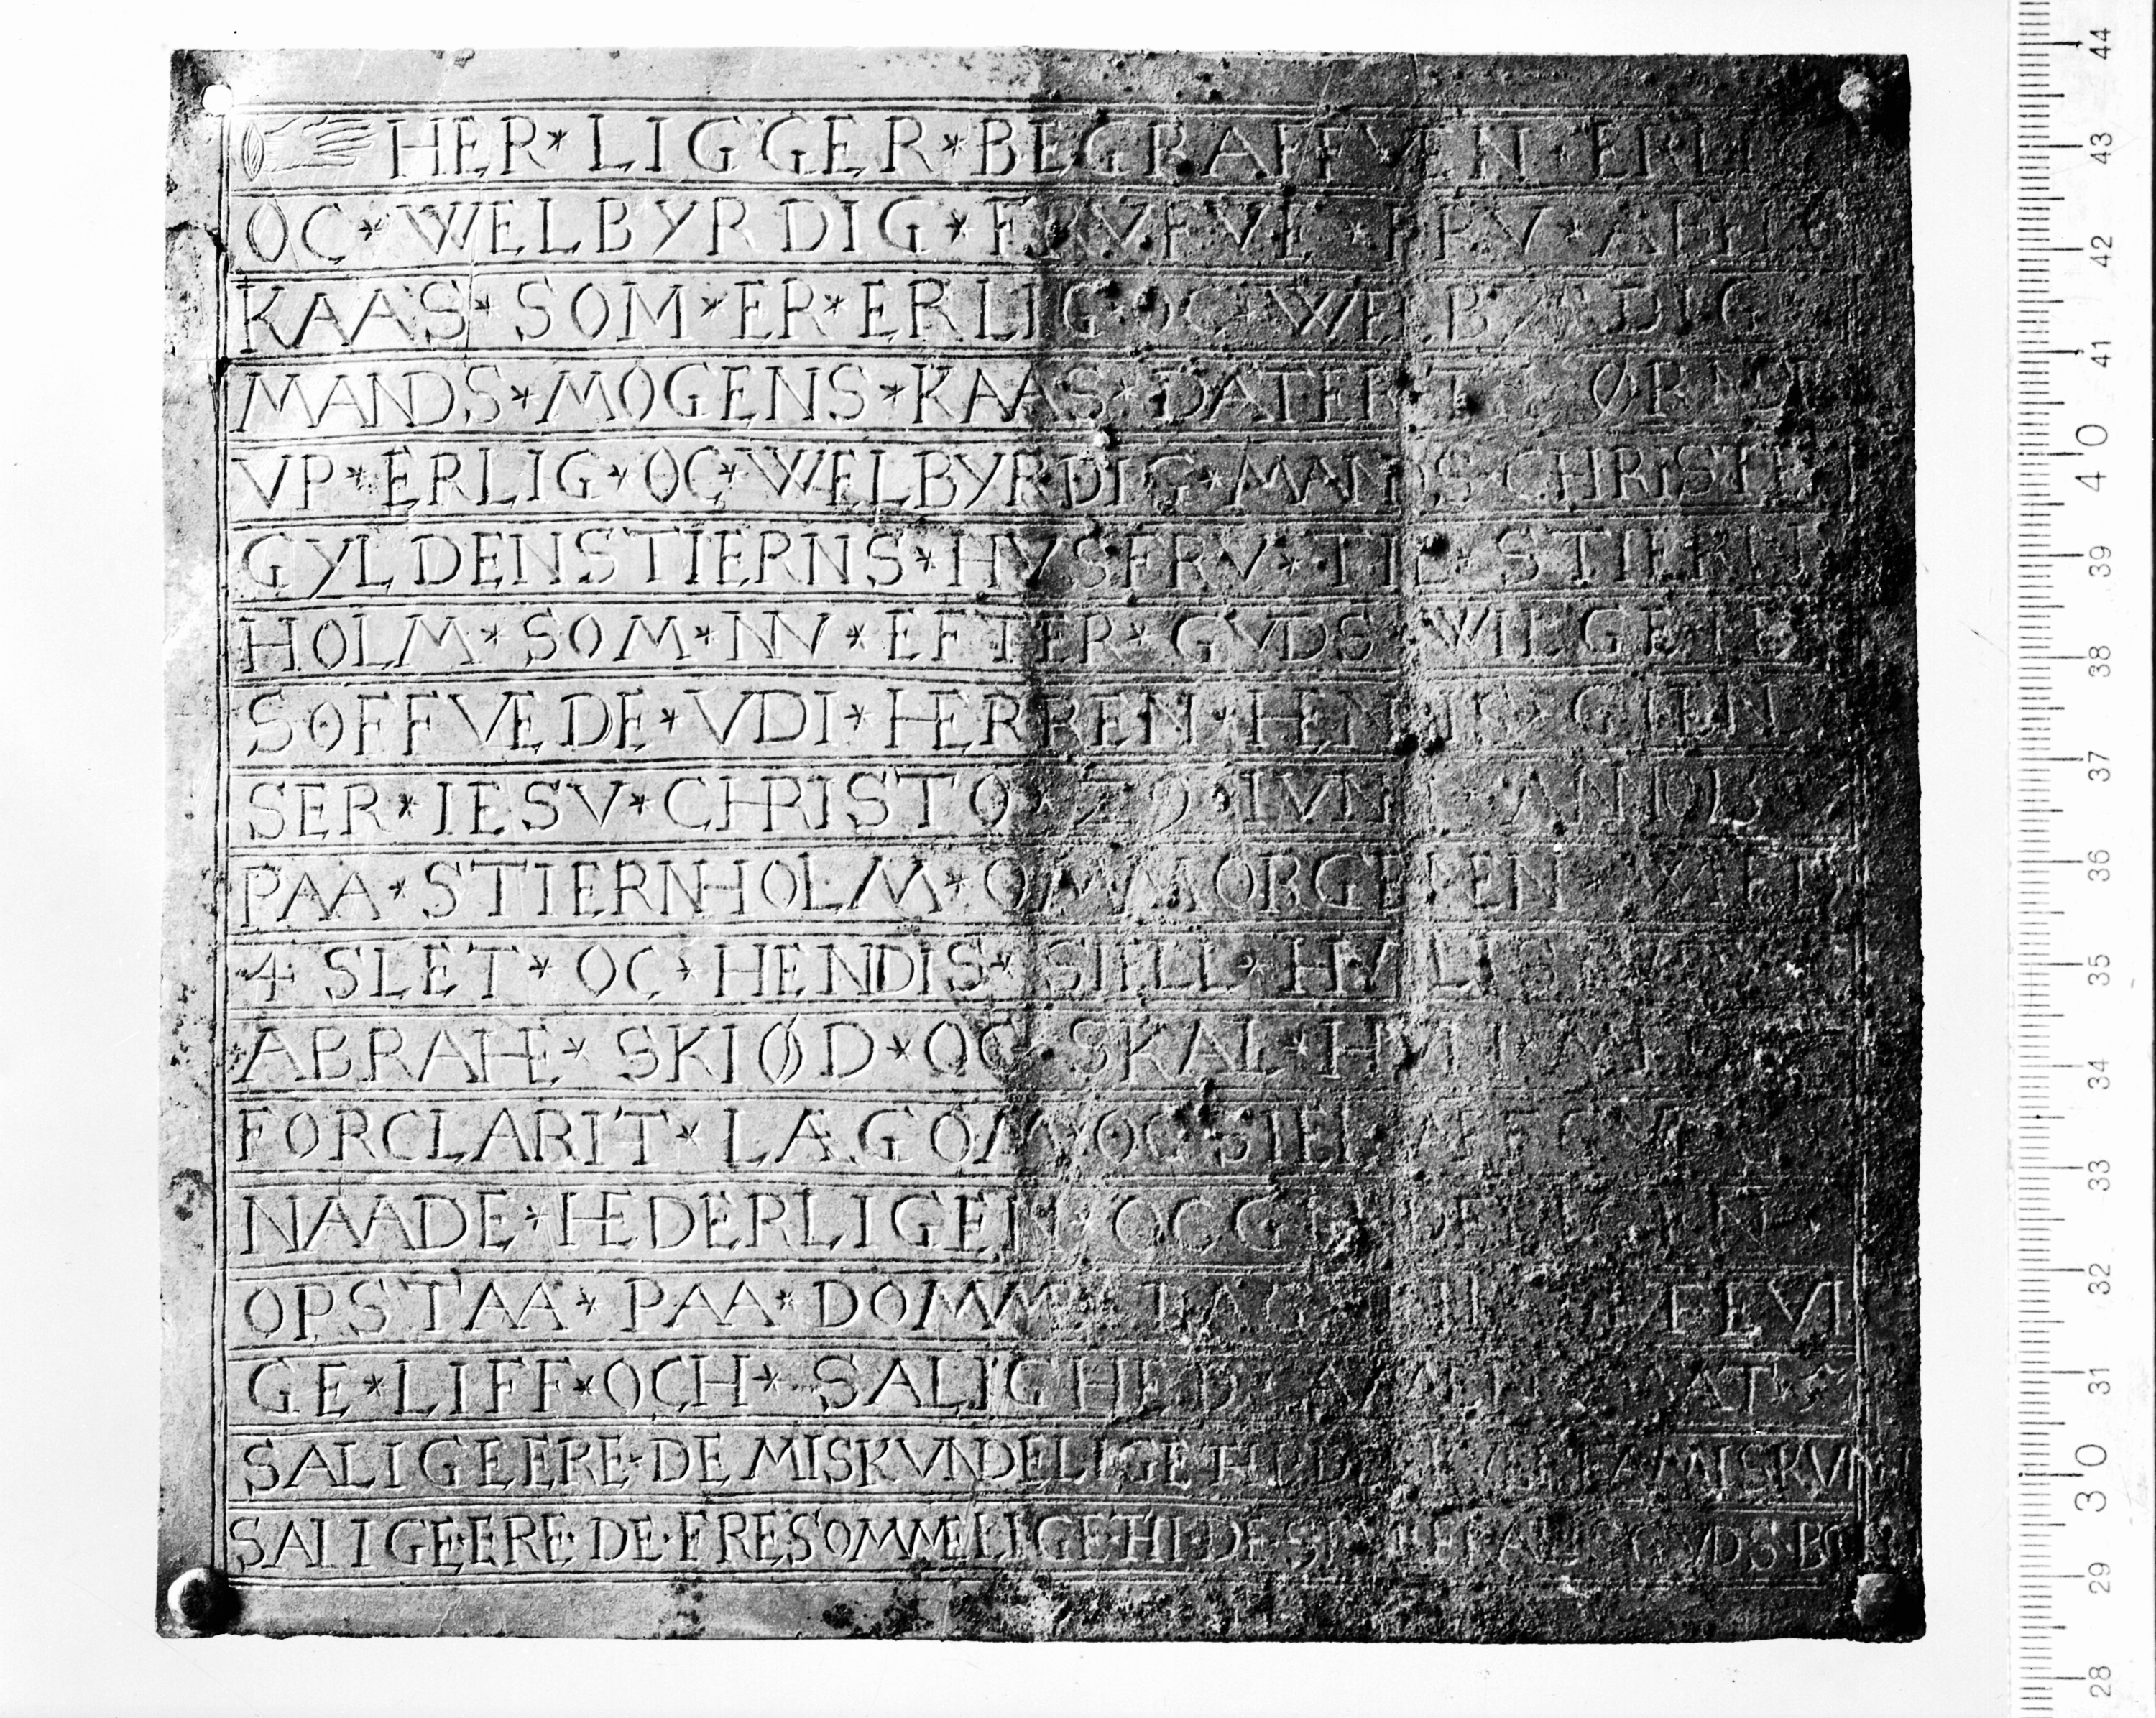 HER * LIGGER * BEGRAFFVEN * ERLI
OC * WELBYRDIG * FRVFVE * FRV *
KAAS * SOM * ER * ERLIG * OC * WELBYRDIG
MANDS * MOGENS * KAAS * DATER TIL ØRND
VP * ERLIG * OC * WELBYRDIG * MANDS * CHRISTE
GYLDENSTIERNS * HVSFRV * TIL * STIERN
HOLM * SOM * NV * EFTER * GVDS * WILGE
SOFFVEDE * VDI * HERREN * HENDIS * GIEN
SER * IESV * CHRISTO * 29 * IVNI
PAA * STIERNHOLM * OM MORGENEN *
4 SLET * OC * HENDIS * SIELL * HVILIS
ABRAHE * SKIØD * OC * SKAL * HVILI
FORCLARIT * LÆGOM * OC * SIEL AFF GVDS
NAADE * HEDERLIGEN * OC GLEDELIGEN
OPSTAA * PAA * DOMMENS DAG TIL EVI
GE * LIFF * OCH * SALIGHED * AMEN * MAT 5
SALIGE ERE DE MISKVNDELIGE HI DE SKVLLE FAA MISKVNH
SALIGE ERE DE FRESOMMELIGE HI DE SKVLLE KALLIS GVDS BØRN